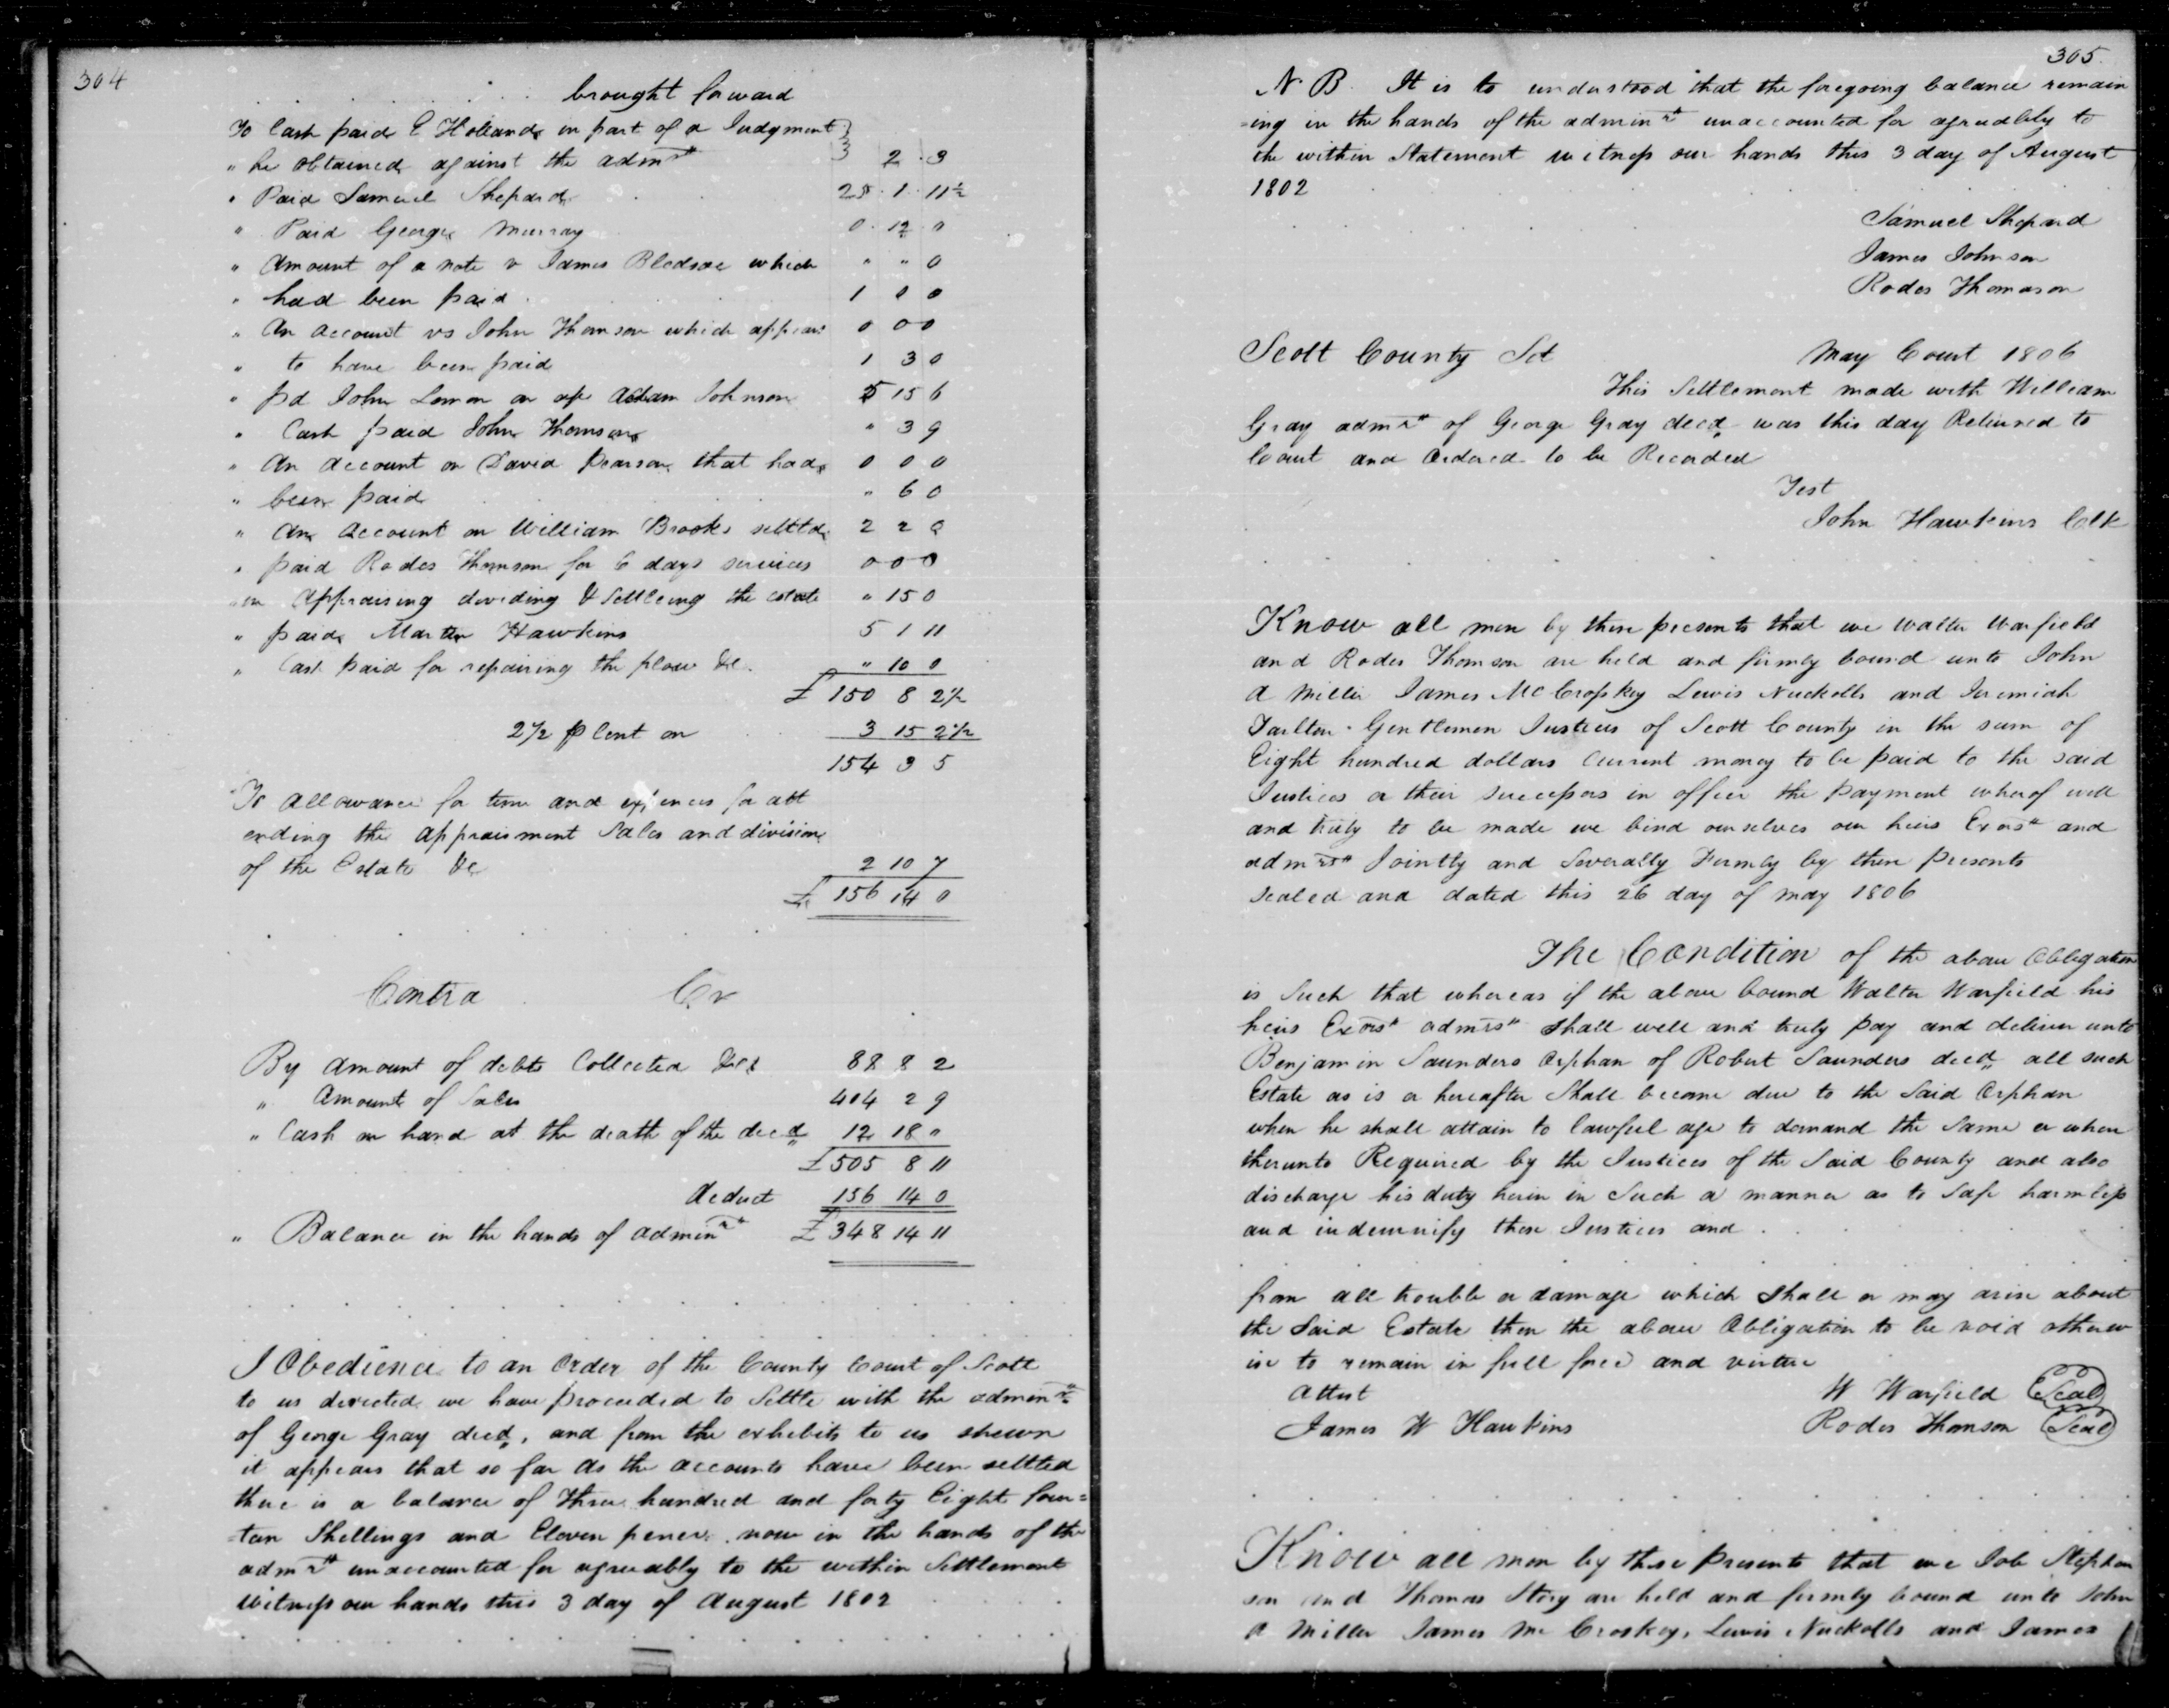 304
brought forward
To Cash paid E Holland in part of a Judgment
" he obtained against the admr 2 . 3
" Paid Samuel Shepard 25 . 1 . 11½
" Paid George Murray 0 . 12 . 0
" Amount of a note v James Bledsoe which " " 0
" had been paid 1 0 0
" An Account vs John Thomson which appears 0 0 0
" to have been paid 1 3 0
" pd John Lemon on Adam Johnson 5 15 6
" Cash paid John Thomson " 3 9
" An account on David Pearson that had 0 0 0
" been paid " 6 0
" An Account on William Brooks settled 2 2 0
" paid Rodes Thomson for 6 days services 0 0 0
" in Appraising dividing & Settleing the estate " 15 0
" paid Martin Hawkins 5 1 11
" Cash paid for repairing the plow &c. " 10 0
£ 150 8 2½
2½ p Cent on 3 15 2½
154 3 5
To allowance for time and expences for att
ending the appraisment Sales and division
of the Estate &c 2 10 7
£ 156 14 0
Contra Cr
By amount of debts Collected 88 8 2
" Amount of Sales 404 2 9
" Cash on hand at the death of the decd 12 18 "
£ 505 8 11
deduct 156 14 0
" Balance in the hands of adminr £ 348 14 11
I Obedience to an Order of the County Court of Scott
to us directed we have proceeded to Settle with the adminr
of George Gray decd, and from the exhibits to us shewn
it appears that so far as the accounts have been settled
there is a balance of Three hundred and forty Eight four=
-teen Shellings and Eleven pence now in the hands of the
admr unaccounted for agreeably to the within Settlement
witness our hands this 3 day of August 1802
305.
N B It is to understood that the foregoing balance remain
-ing in the hands of the adminr unaccounted for agreeably to
the within Statement witness our hands this 3 day of August
1802
Samuel Shepard
James Johnson
Rodes Thomason
Scott County Sct May Court 1806
This Settlement made with William
Gray admr of George Gray decd was this day Returned to
Court and Ordered to be Recorded
Test
John Hawkins Clk
Know all men by these presents that we Walter Warfield
and Rodes Thomson are held and firmly bound unto John
A Miller James McCroskey Lewis Nuckolls and Jeremiah
Tarlton Gentlemen Justices of Scott County in the sum of
Eight hundred dollars Current money to be paid to the said
Justices or their successors in office the payment wherof well
and truly to be made we bind ourselves our heirs Exors and
admrs Jointly and Severally Firmly by these presents
sealed and dated this 26 day of may 1806
The Condition of the above Obligation
is Such that whereas if the above bound Walter Warfield his
heirs Exors admrs shall well and truly pay and deliver unto
Benjamin Saunders Orphan of Robert Saunders decd all such
Estate as is or hereafter Shall become due to the Said Orphan
when he shall attain to lawfull age to demand the Same or when
therunto Required by the Justices of the Said County and also
discharge his duty herin in Such a manner as to Safe harmless
and indemnify these Justices and
from all trouble or damage which shall or may arise about
the Said Estate then the above Obligation to be void otherw
ise to remain in full force and virtue
Attest W Warfield Seal
James W Hawkins Rodes Thomson Seal
Know all men by these presents that we Job Stephen
son and Thomas Story are held and firmly bound unto John
A Miller James Mc Croskey, Lewis Nuckolls and James